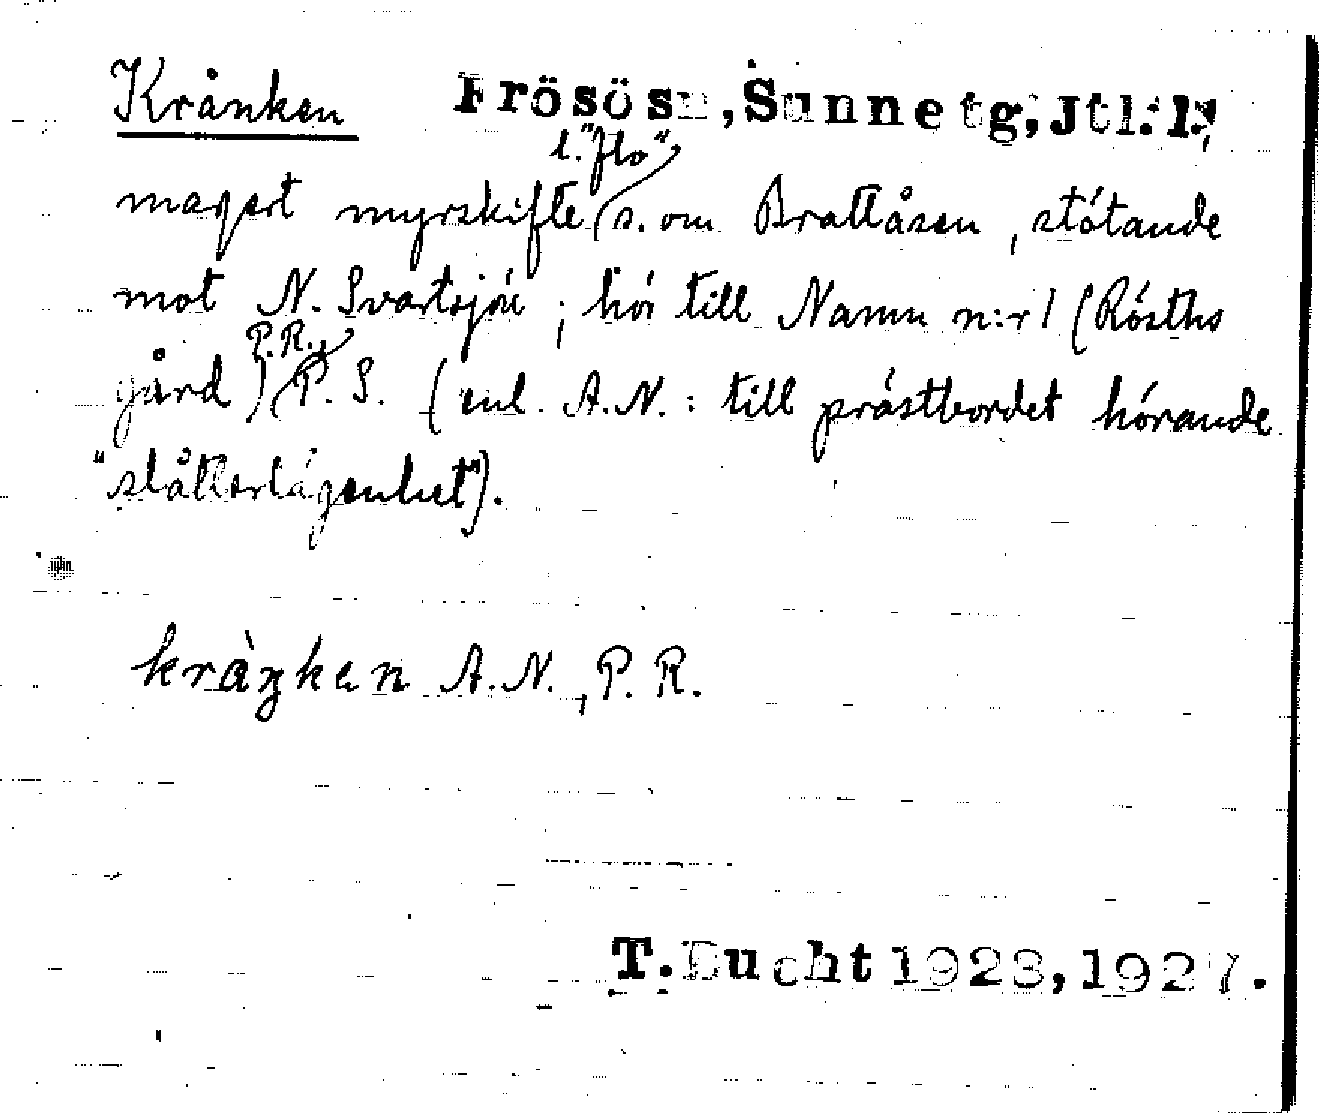 Krånken Frösösn, Sunne tg, Jtl.l.
l. "flo"
magert myrskifte s. om Brattåsen, stötande
mot N. Svartsjön; hör till Namn n:r 1 (Rösths
P.R.,
gård) P. S. (enl. A.N.: till prästbordet hörande
"slåtterlägenhet").
kràŋken A.N., P. R.
T. Bucht 1923, 1927.